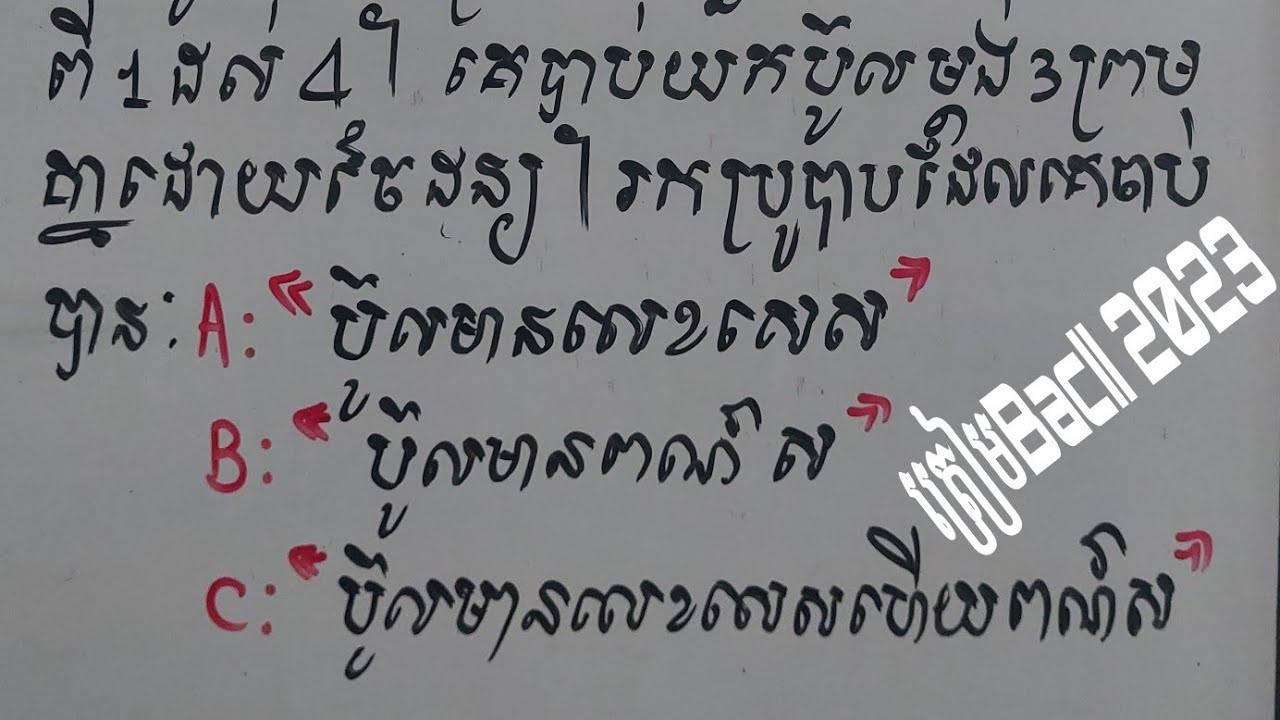 ពី 1 ដល់ 4។ គេចាប់យកប៊ូលម្ដង 3 ព្រម
គ្នាដោយចៃដន្យ។ រកប្រូបាបដែលគេចាប់
បាន:
A: "ប៊ូលមានលេខសេស"
B: "ប៊ូលមានពណ៌ ស"
C: "ប៊ូលមានលេខសេសហើយពណ៌ស"
ត្រៀមBacII 2023